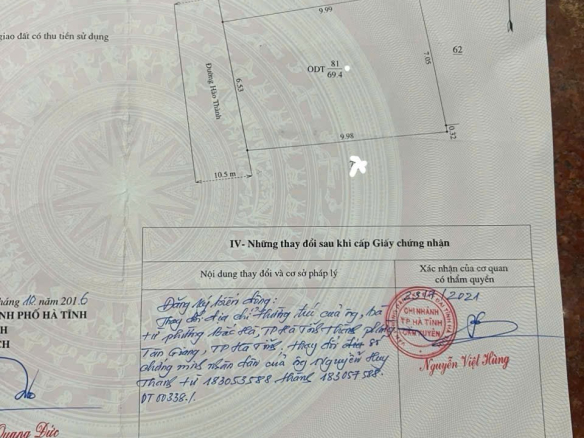 giao đất có thu tiền sử dụng
9.99
ODT 81
69.4
62
7.05
6.53
Đường Hào Thành
9.98
0.32
10.5 m
IV- Những thay đổi sau khi cấp Giấy chứng nhận
Nội dung thay đổi và cơ sở pháp lý
Xác nhận của cơ quan
có thẩm quyền
háng 10 năm 2016
NH PHỐ HÀ TĨNH
H
CH
Quang Đức
Đăng ký biến động:
Thay đổi địa chỉ thường trú của ông, bà
từ phường Bắc Hà, TP Hà Tĩnh thành phường
Tân Giang, TP Hà Tĩnh. Thay đổi số
chứng minh nhân dân của ông Nguyễn Huy
Thành từ 183053588 thành 183057588.
/2021
CHI NHÁNH
TP HÀ TĨNH
Nguyễn Việt Hùng